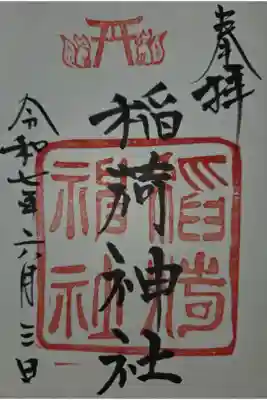 奉拝
稲荷神社
稲荷
神社
令和七年六月三日